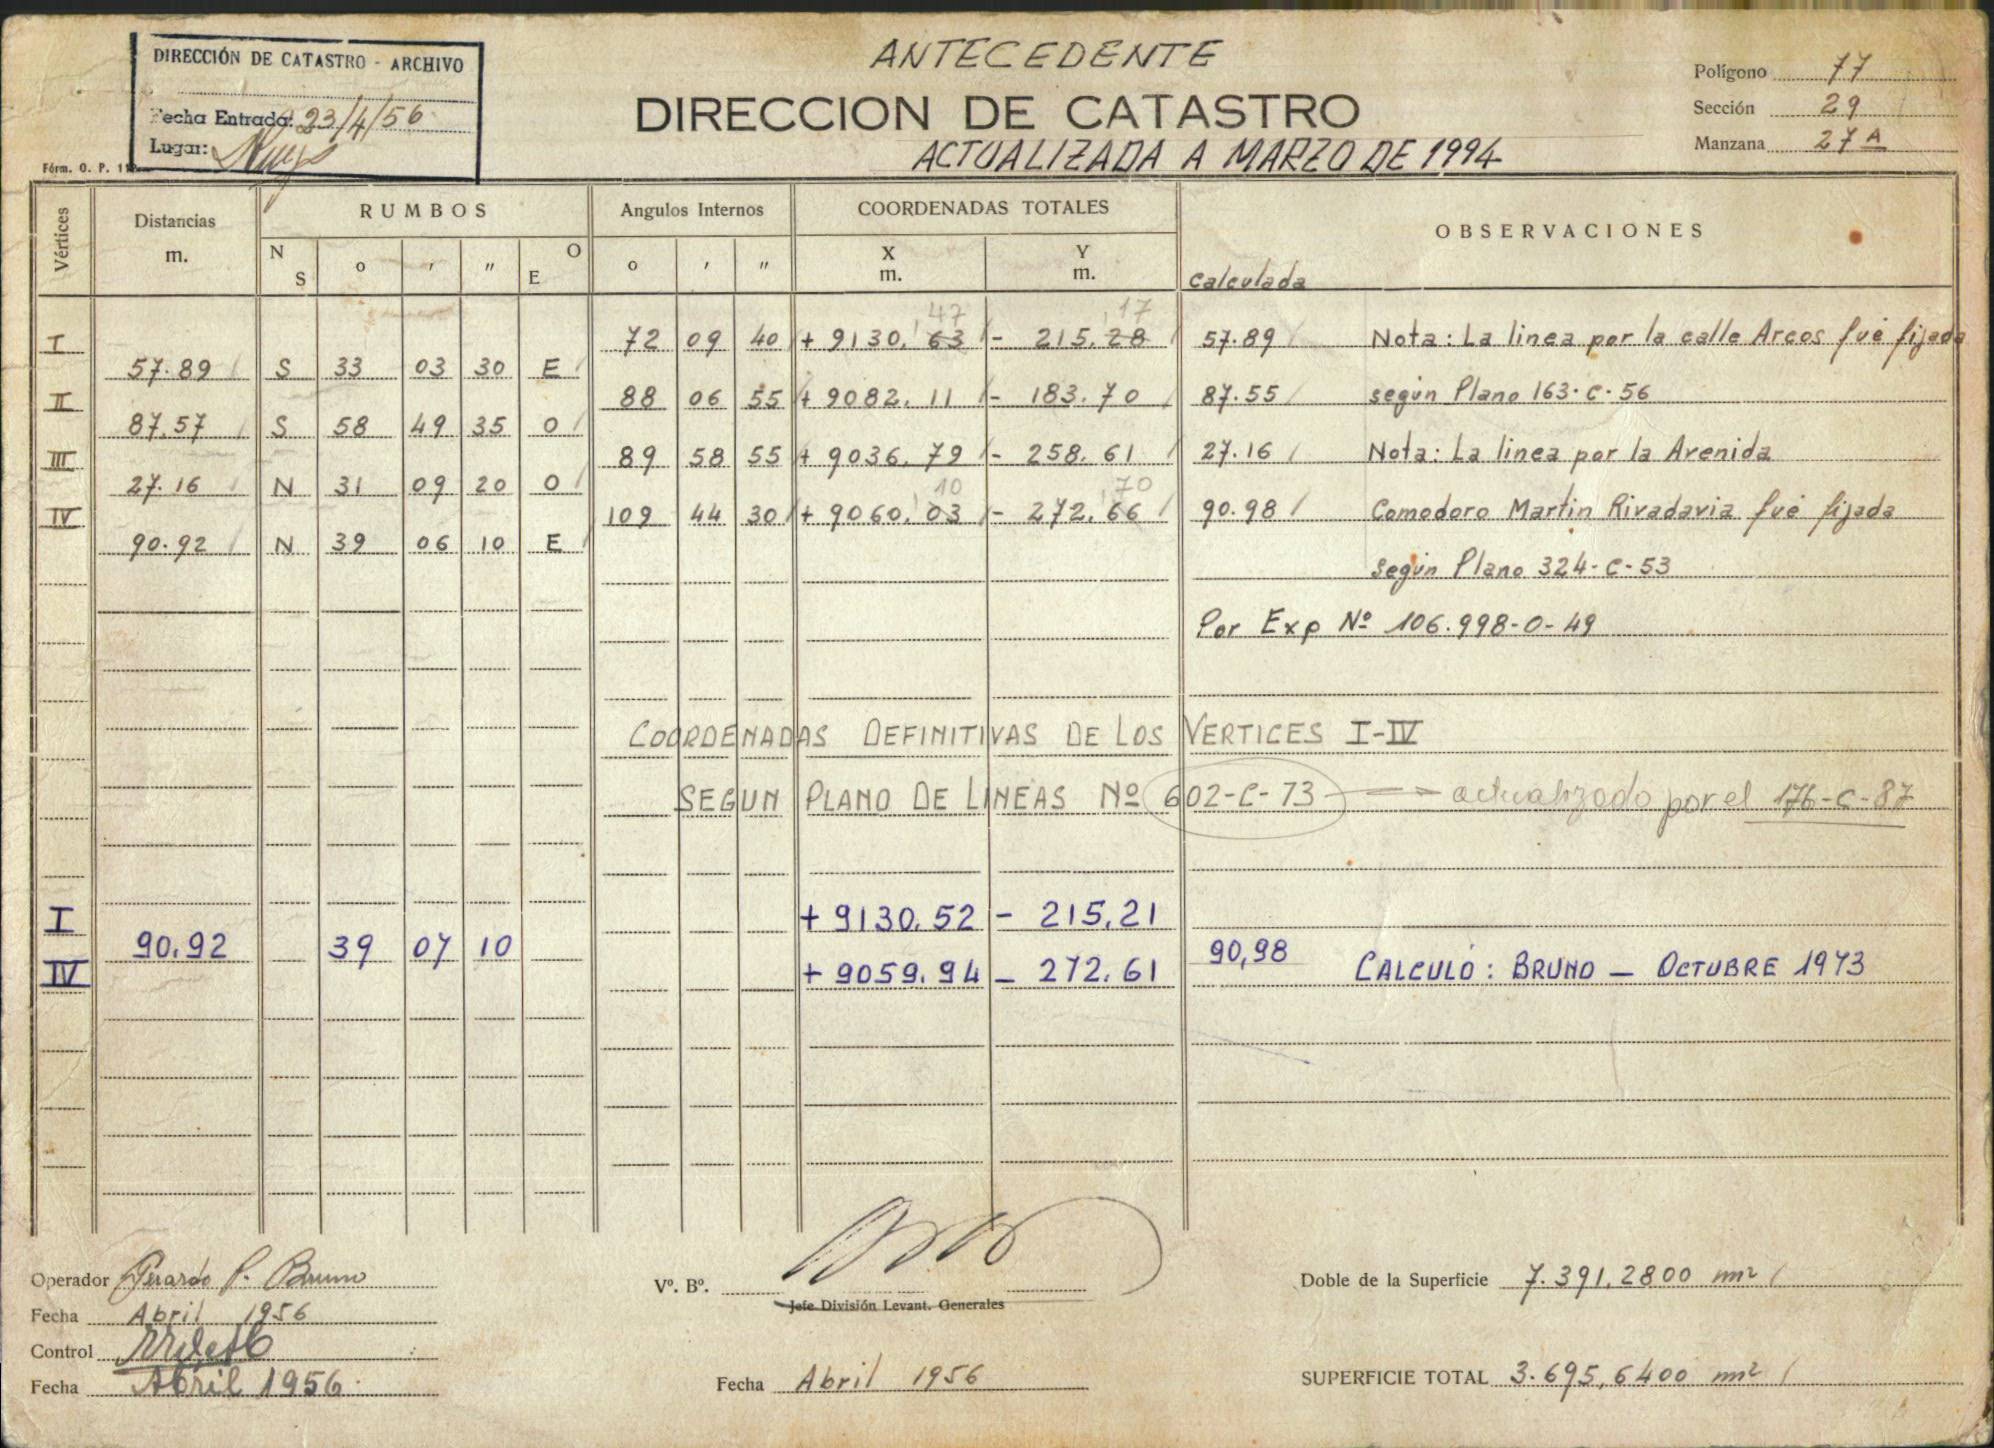 DIRECCIÓN DE CATASTRO - ARCHIVO
Fecha Entrada: 23/4/56
Lugar:
Fórm. O. P. 11
ANTECEDENTE
DIRECCION DE CATASTRO
ACTUALIZADA A MARZO DE 1994
Polígono 77
Sección 29
Manzana 27 A
Vértices
Distancias m.
RUMBOS
N S ° ′ ″ O E
Angulos Internos
° ′ ″
COORDENADAS TOTALES
X m. Y m.
OBSERVACIONES
Calculada
I 72 09 40 + 9130, 63 47 - 215, 28 17 57.89 Nota: La linea por la calle Arcos fué fijada
57.89 S 33 03 30 E
II 88 06 55 + 9082. 11 - 183. 70 87.55 según Plano 163-C-56
87,57 S 58 49 35 O
III 89 58 55 + 9036, 79 - 258. 61 27.16 Nota: La linea por la Avenida
27.16 N 31 09 20 O
IV 109 44 30 + 9060, 03 10 - 272, 66 70 90.98 Comodoro Martin Rivadavia fué fijada
90.92 N 39 06 10 E
según Plano 324-C-53
Por Exp Nº 106.998-O-49
COORDENADAS DEFINITIVAS DE LOS VERTICES I-IV
SEGUN PLANO DE LINEAS Nº 602-C-73 actualizado por el 176-C-87
I + 9130,52 - 215,21
90,92 39 07 10 90,98 CALCULÓ: BRUNO — OCTUBRE 1973
IV + 9059.94 - 272.61
Operador Gerardo P. Bruno
Fecha Abril 1956
Control
Fecha Abril 1956
Vº. Bº.
Jefe División Levant. Generales
Fecha Abril 1956
Doble de la Superficie 7.391,2800 m²
SUPERFICIE TOTAL 3.695,6400 m²